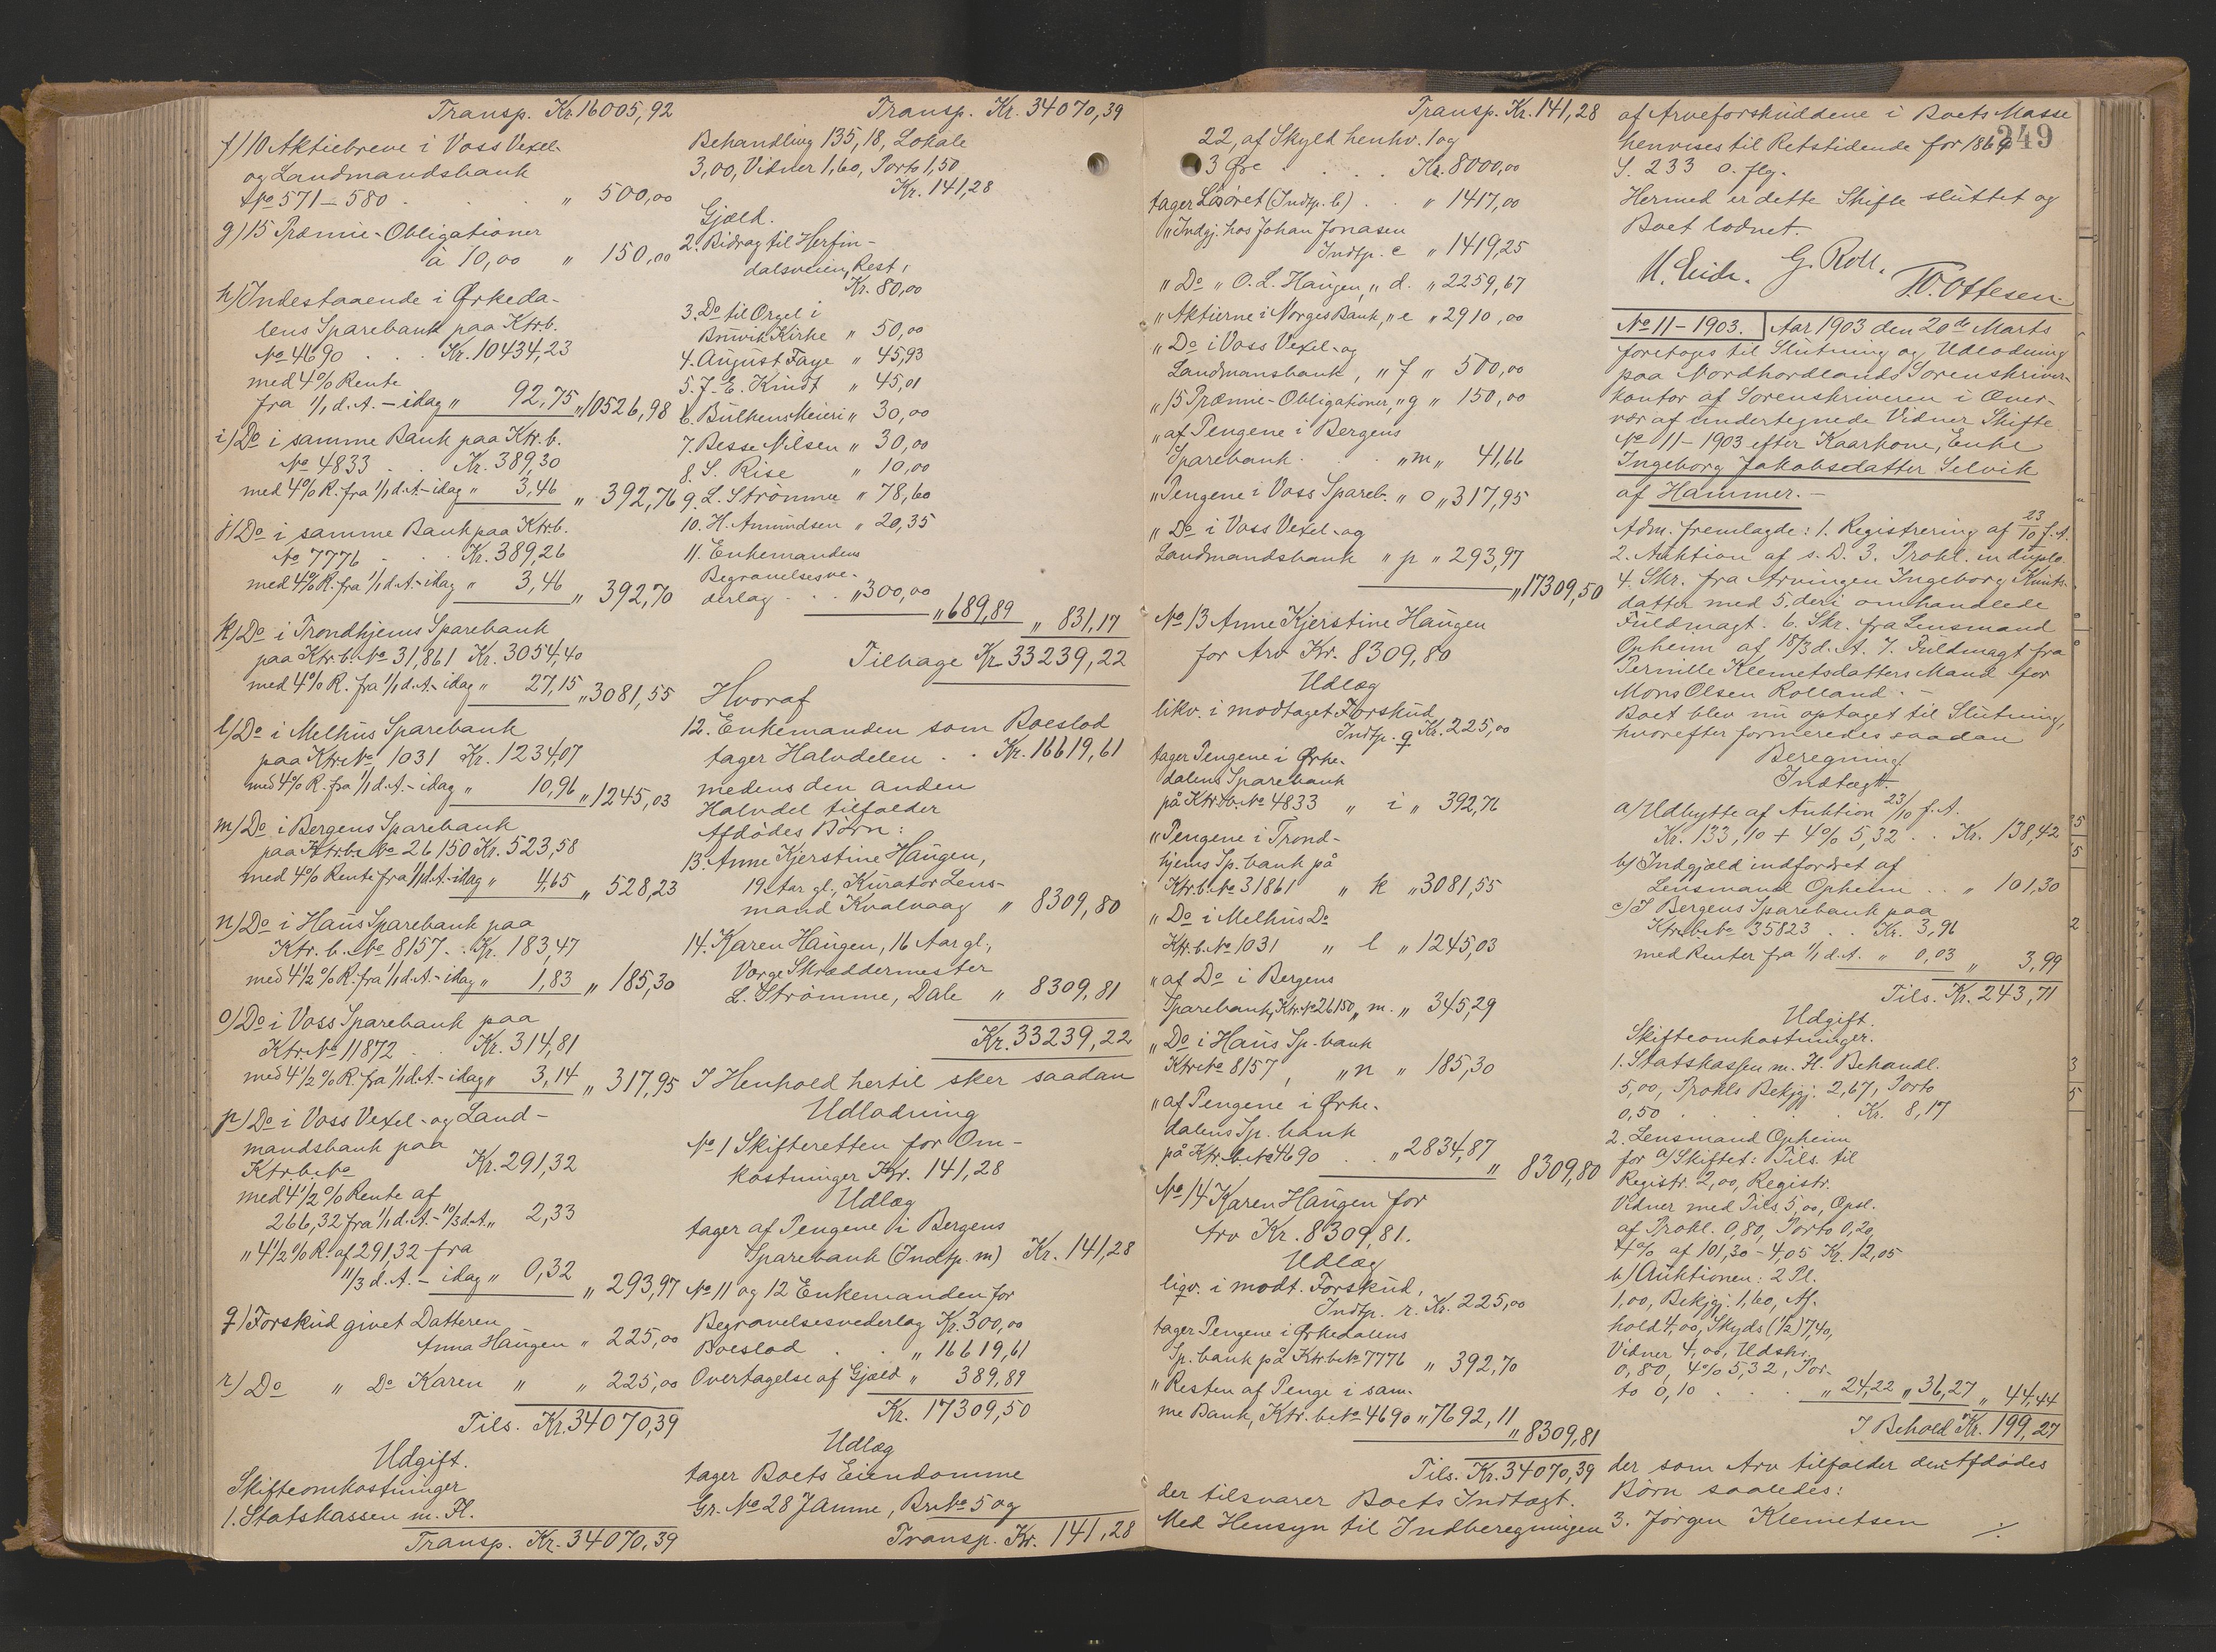 Transp. Kr. 16005,92
f) 10 Aktiebreve i Voss Vexel-
og Landmandsbank
No 571-580 . . . " 500,00
g) 15 Præmie-Obligationer
à 10,00 " 150,00
h) Indestaaende i Ørkeda-
lens Sparebank paa Ktr.b.
No 4690 . . . Kr. 10434,23
med 4% Rente
fra 1/1 d.A. - idag " 92,75 " 10526,98
i) Do i samme Bank paa Ktr.b.
No 4833 . . Kr. 389,30
med 4% R. fra 1/1 d.A. - idag " 3,46 " 392,76
j) Do i samme Bank paa Ktr.b.
No 7776 . . . Kr. 389,26
med 4% R. fra 1/1 d.A. - idag " 3,46 " 392,70
k) Do i Trondhjems Sparebank
paa Ktr.b. No 31,861 Kr. 3054,40
med 4% R. fra 1/1 d.A. - idag " 27,15 " 3081,55
l) Do i Melhus Sparebank
paa Ktr. No 1031 Kr. 1234,07
med 4% R. fra 1/1 d.A. - idag " 10,96 " 1245,03
m) Do i Bergens Sparebank
paa Ktr.b. No 26150 Kr. 523,58
med 4% Rente fra 1/1 d.A. - idag " 4,65 " 528,23
n) Do i Haus Sparebank paa
Ktr. b. No 8157 . . Kr. 183,47
med 4 1/2 % R. fra 1/1 d.A. - idag " 1,83 " 185,30
o) Do i Voss Sparebank paa
Ktr. No 11872 . . Kr. 314,81
med 4 1/2 % R. fra 1/1 d.A. - idag " 3,14 " 317,95
p) Do i Voss Vexel- og Land-
mandsbank paa
Ktr.b. No Kr. 291,32
med 4 1/2 % Rente af
266,32 fra 1/1 d.A. - 10/3 d.A. " 2,33
" 4 1/2 % R. af 291,32 fra
11/3 d.A. - idag " 0,32 " 293,97
q) Forskud givet Datteren
Anna Haugen " 225,00
r) Do " Do Karen " " 225,00
Tils. Kr. 34070,39
Udgift.
Skifteomkostninger
1. Statskassen m. H.
Transp. Kr. 34070,39
Transp. Kr. 34070,39
Behandling 135,18, Lokale
3,00, Vidner 1,60, Porto 1,50
Kr. 141,28
Gjæld.
2. Bidrag til Herfin-
dalsveien, Rest,
Kr. 80,00
3. Do til Orgel i
Bruvik Kirke " 50,00
4. August Faye " 45,93
5. J. E. Kindt " 45,01
6. Bulkens Meieri " 30,00
7. Besse Nilsen " 30,00
8. S. Rise " 10,00
9. L. Strömme " 78,60
10. H. Amundsen " 20,35
11. Enkemandens
Begravelsesve-
derlag . . . " 300,00
" 689,89 " 831,17
Tilbage Kr. 33239,22
Hvoraf
12. Enkemanden som Boeslod
tager Halvdelen . . Kr. 16619,61
medens den anden
Halvdel tilfalder
Afdödes Börn:
13. Anne Kjerstine Haugen,
19 Aar gl., Kurator Lens-
mand Kvalvaag " 8309,80
14. Karen Haugen, 16 Aar gl.,
Værge Skræddermester
L. Strömme, Dale " 8309,81
Kr. 33239,22
I Henhold hertil sker saadan
Udlodning
No 1 Skifteretten for Om-
kostninger Kr. 141,28
Udlæg
tager af Pengene i Bergens
Sparebank (Indtp. m) Kr. 141,28
No 11 og 12 Enkemanden for
Begravelsesvederlag Kr. 300,00
Boeslod . . " 16619,61
Overtagelse af Gjæld " 389,89
Kr. 17309,50
Udlæg
tager Boets Eiendomme
Gr. No 28 Jamne, Br. No 5 og
Transp. Kr. 141,28
Transp. Kr. 141,28
22, af Skyld henhv. 1 og
3 Øre . . . . Kr. 8000,00
tager Løsöret (Indtp. b) . . " 1417,00
" Indgj. hos Johan Jonasen
Indtp. c " 1419,25
" Do " O. L. Haugen, " d. " 2259,67
" Aktierne i Norges Bank, " e " 2910,00
" Do i Voss Vexel- og
Landmansbank, " f " 500,00
" 15 Præmie-Obligationer, " g " 150,00
" af Pengene i Bergens
Sparebank . . . " m " 41,66
" Pengene i Voss Spareb. " o " 317,95
" Do i Voss Vexel- og
Landmandsbank " p " 293,97
" 17309,50
No 13 Anne Kjerstine Haugen
for Arv Kr. 8309,80
Udlæg
likv. i modtaget Forskud
Indtp. q Kr. 225,00
tager Pengene i Ørke-
dalens Sparebank
på Ktr.b. No 4833 " i " 392,76
" Pengene i Trond-
hjems Sp.bank på
Ktr.b. No 31861 " k " 3081,55
" Do i Melhus Do
Ktr. b. No 1031 " l " 1245,03
" af Do i Bergens
Sparebank, Ktr. No 26150 " m. " 345,29
" Do i Haus Sp.bank
Ktr. No 8157, " n " 185,30
" af Pengene i Ørke-
dalens Sp. bank
på Ktr. b. No 4690 . . " 2834,87
" 8309,80
No 14 Karen Haugen for
Arv Kr. 8309,81.
Udlæg
liqv. i modt. Forskud,
Indtp. r. Kr. 225,00
tager Pengene i Ørkedalens
Sp. bank på Ktr.b. No 7776 " 392,70
" Resten af Penge i sam-
me Bank, Ktr. b. No 4690 " 7692,11
" 8309,81
Tils. Kr. 34070,39
der tilsvarer Boets Indtægt.
Med Hensyn til Indberegningen
af Arveforskuddene i Boets Masse
henvises til Retstidende for 1869
249
S. 233 o. flg.
Hermed er dette Skifte sluttet og
Boet lodnet.
G. Roll.
Ottesen
No 11 - 1903. Aar 1903 den 20de Marts
foretoges til Slutning og Udlodning
paa Nordhordlands Sorenskriver-
kontor af Sorenskriveren i Over-
vær af undertegnede Vidner Skifte
No 11 - 1903 efter Kaarkone, Enke
Ingeborg Jakobsdatter Selvik
af Hammer. -
Adm. fremlagde: 1. Registrering af 23/10 f.A.
2. Auktion af s.D. 3. Prokl. in duplo
4. Skr. fra Arvingen Ingeborg Knuts-
datter med 5. deri omhandlede
Fuldmagt. 6. Skr. fra Lensmand
Opheim af 18/3 d.A. 7. Fuldmagt fra
Pernille Klemetsdatters Mand for
Mons Olsen Rolland. -
Boet blev nu optaget til Slutning,
hvorefter formeredes saadan
Beregning
Indtægt.
a) Udbytte af Auktion 23/10 f.A.
Kr. 133,10 + 4% 5,32 . . Kr. 138,42
b) Indgjæld indfordret af
Lensmand Opheim . . " 101,30
c) I Bergens Sparebank paa
Ktr.b. No 35823 . . Kr. 3,96
med Renter fra 1/1 d.A. " 0,03 " 3,99
Tils. Kr. 243,71
Udgift.
Skifteomkostninger.
1. Statskassen m. H. Behandl.
5,00, Prokls Bekjgj. 2,67, Porto
0,50 . . . . Kr. 8,17
2. Lensmand Opheim
for a) Skiftet: Tils. til
Registr. 2,00, Registr.
Vidner med Tils. 5,00, Opsl.
af Prokl. 0,80, Porto 0,20
4% af 101,30 - 4,05 Kr. 12,05
b) Auktionen: 2 Pl.
1,00, Bekjgj. 1,60, Af-
hold 4,00, Skyds (1/2) 7,40,
Vidner 4,00, Udskr.
0,80, 4% 5,32, Por-
to 0,10 . . . " 24,22 " 36,27 " 44,44
I Behold Kr. 199,27
der som Arv tilfalder den Afdødes
Börn saaledes:
3. Jørgen Klemetsen ./.